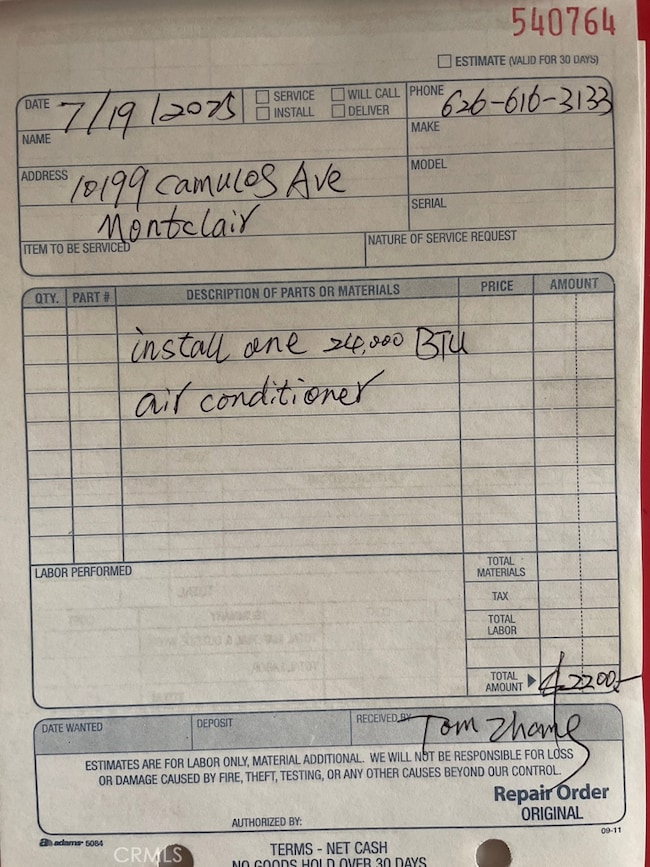 540764
ESTIMATE (VALID FOR 30 DAYS)
DATE 7/19/2025 SERVICE WILL CALL PHONE 626-616-3133
INSTALL DELIVER
NAME MAKE
ADDRESS 10199 Camulos Ave MODEL
Montclair SERIAL
ITEM TO BE SERVICED NATURE OF SERVICE REQUEST
QTY. PART # DESCRIPTION OF PARTS OR MATERIALS PRICE AMOUNT
install one 24,000 BTU
air conditioner
LABOR PERFORMED TOTAL MATERIALS
TAX
TOTAL LABOR
TOTAL AMOUNT $2200-
DATE WANTED DEPOSIT RECEIVED BY Tom Zhang
ESTIMATES ARE FOR LABOR ONLY, MATERIAL ADDITIONAL. WE WILL NOT BE RESPONSIBLE FOR LOSS
OR DAMAGE CAUSED BY FIRE, THEFT, TESTING, OR ANY OTHER CAUSES BEYOND OUR CONTROL.
Repair Order
ORIGINAL
AUTHORIZED BY:
09-11
adams 5084
CRMLS
TERMS - NET CASH
NO GOODS HOLD OVER 30 DAYS